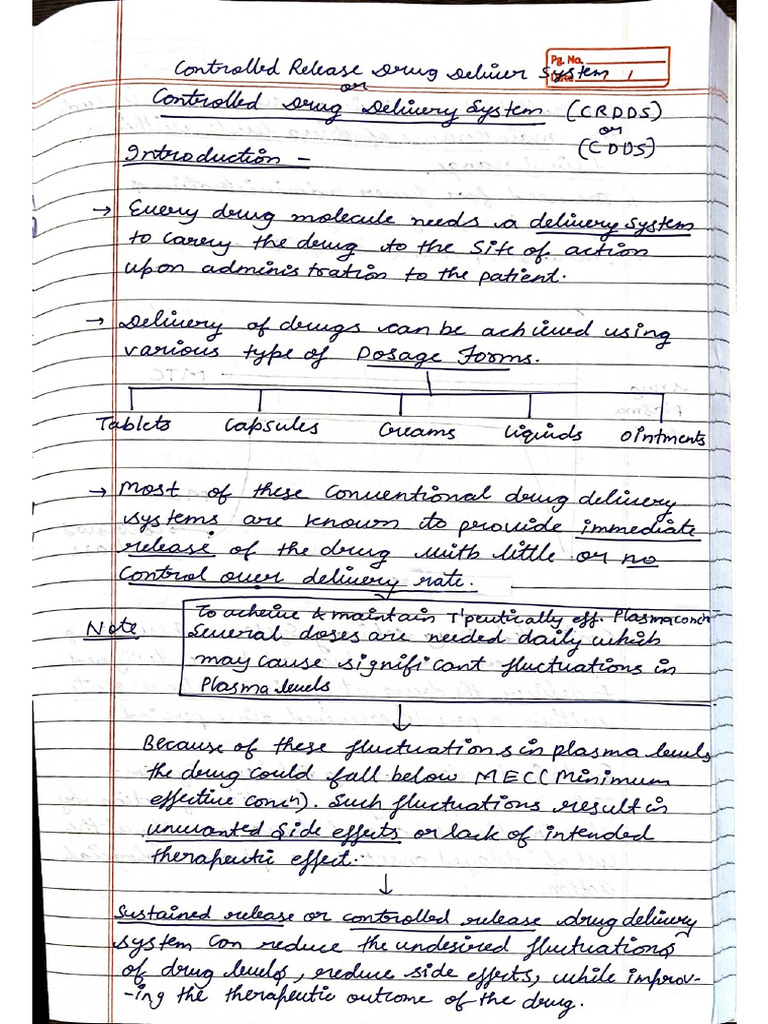 Pg. No.
Date
Controlled Release Drug Deliver System 1
or
Controlled Drug Delivery System (CRDDS)
or
(CDDS)
Introduction -
→ Every drug molecule needs a delivery system
to carry the drug to the site of action
upon administration to the patient.
→ Delivery of drugs can be achieved using
various type of Dosage Forms.
Tablets Capsules Creams Liquids Ointments
→ Most of these Conventional drug delivery
systems are known to provide immediate
release of the drug with little or no
control over delivery rate.
To acheive & maintain T'peutically eff. Plasma concn
Note
Several doses are needed daily which
may cause significant fluctuations in
Plasma levels
↓
Because of these fluctuations in plasma levels
the drug could fall below MEC (Minimum
effective concn). Such fluctuations result in
unwanted side effects or lack of intended
therapeutic effect.
↓
Sustained release or controlled release drug delivery
system can reduce the undesired fluctuations
of drug levels, reduce side effects, while improv-
-ing the therapeutic outcome of the drug.